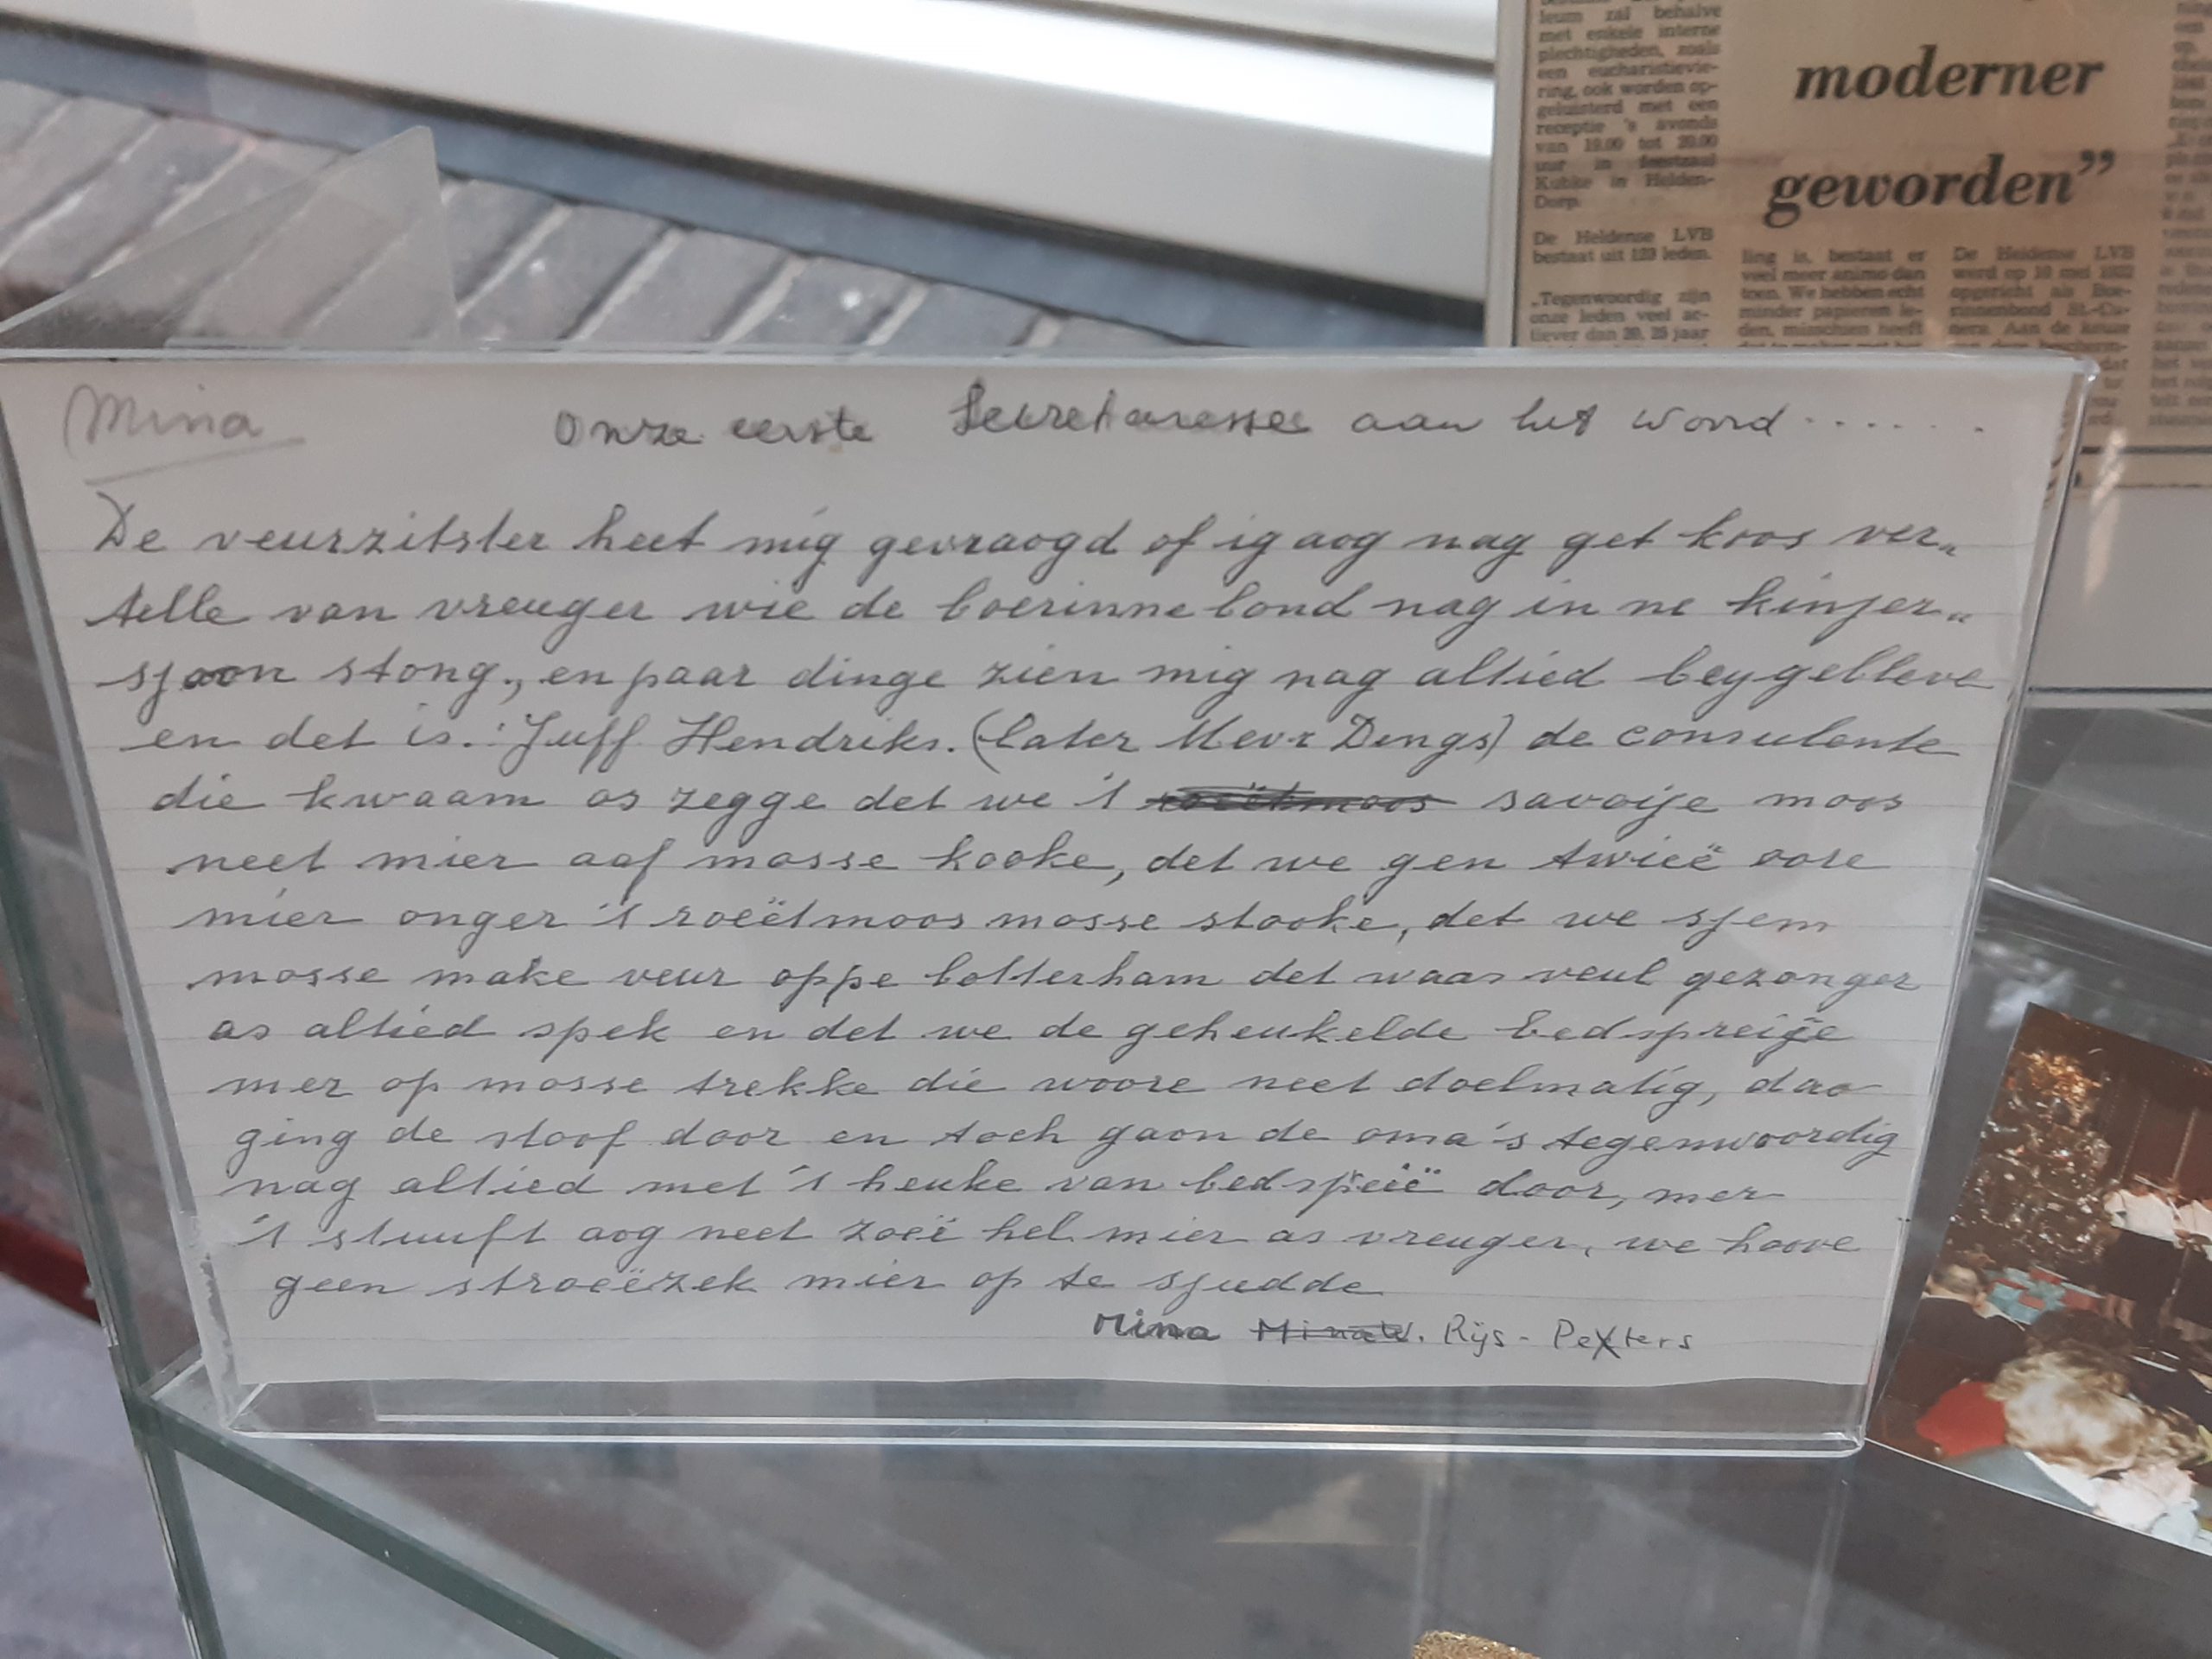 leum zal behalve
met enkele interne
plechtigheden, zoals
een eucharistievie-
ring, ook worden op-
geluisterd met een
receptie 's avonds
van 19.00 tot 20.00
uur in feestzaal
Kubke in Helden-
Dorp.
De Heldense LVB
bestaat uit 123 leden.
„Tegenwoordig zijn
onze leden veel ac-
tiever dan 20, 25 jaar
moderner
geworden”
ling is, bestaat er
veel meer animo dan
toen. We hebben echt
minder papieren le-
den, misschien heeft
De Heldense LVB
werd op 10 mei 1932
opgericht als Boe-
rinnenbond St.-Ca-
Mina
Onze eerste Secretaresse aan het woord .......
De veurzitster heet mig gevraogd of ig aog nag get koos ver„
telle van vreuger wie de boerinnebond nag in ne kinjer„
sjoon stong., en paar dinge zien mig nag altied beygebleve
en det is.: Juff Hendriks. (later Mevr Dings) de consulente
die kwaam os zegge det we 't roeëtmoos savoije moos
neet mier aaf mosse kooke, det we gen twieë oore
mier onger 't roeëtmoos mosse stooke, det we sjem
mosse make veur oppe botterham det waas veul gezonger
as altied spek en det we de geheukelde bedspreije
mer op mosse trekke die woore neet doelmatig, dao
ging de stoof door en toch gaon de oma's tegenwoordig
nag altied met 't heuke van bedspeië door, mer
't stuuft aog neet zoeë hel mier as vreuger, we hoove
geen stroeëzek mier op te sjudde
Mina Rijs - Pexters